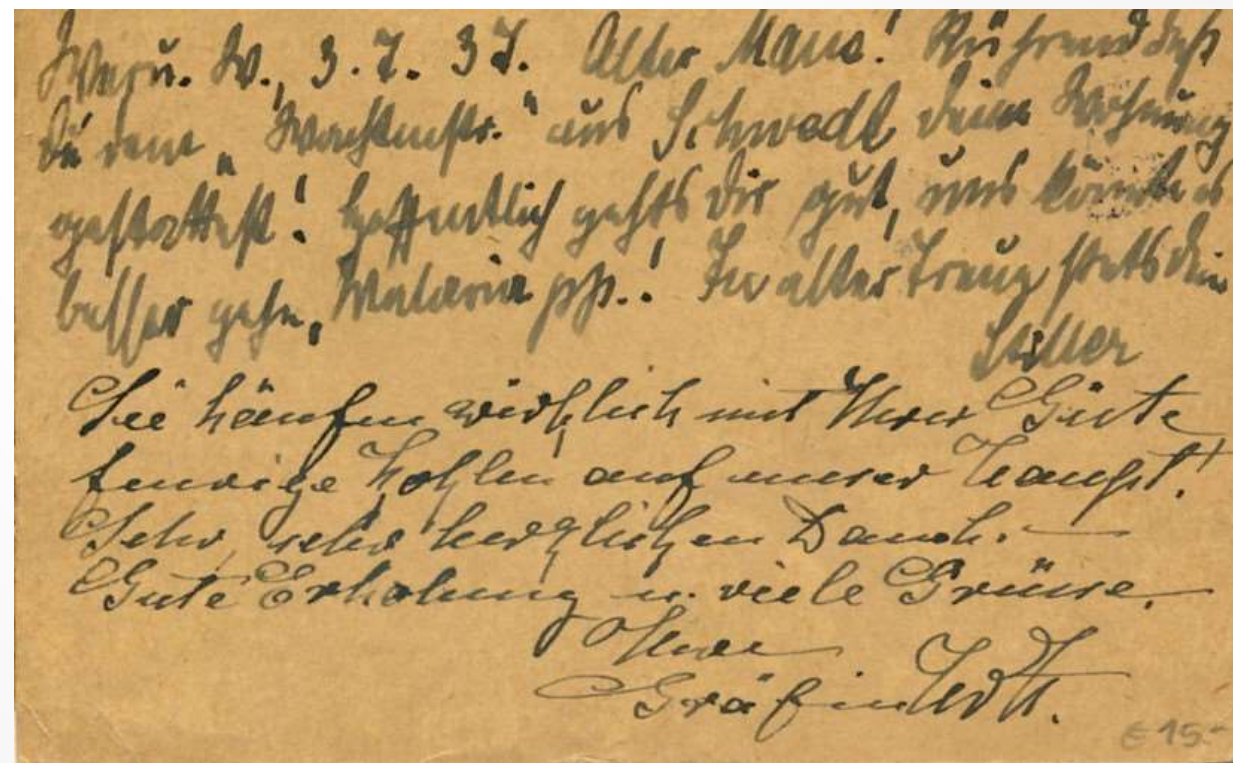 W., 3. 7. 37. Alter Rührend daß
Du dem „Wachtmstr." aus Schwedt deine Wohnung
gestattest! Hoffentlich gehts dir gut, uns könnte es
besser gehn, Malaria pp.! In alter Treue stets dein
Sie häufen wirklich mit Ihrer Güte
feurige Kohlen auf unser Haupt!
Sehr, sehr herzlichen Dank. —
Gute Erholung u. viele Grüsse.
Ihre
Gräfin
€ 15.-